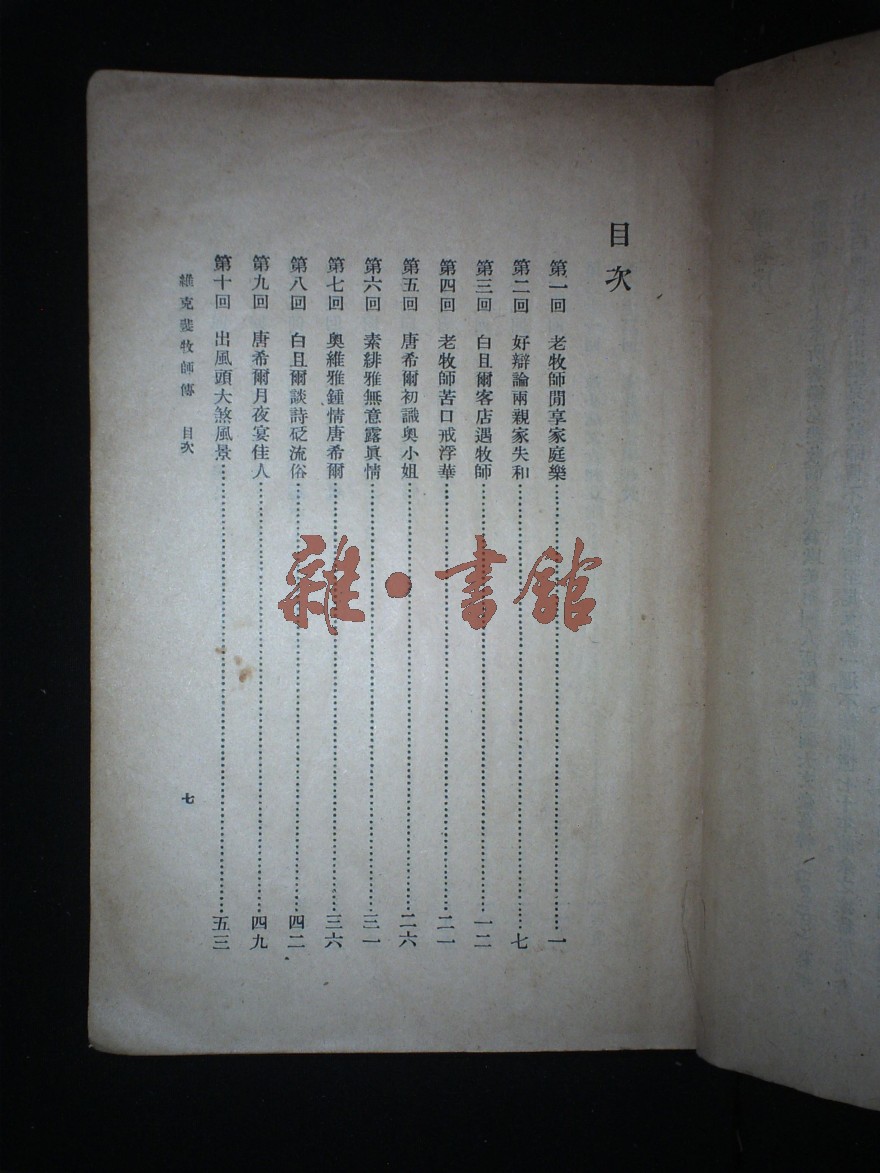 目次
第一回 老牧師閒享家庭樂……一
第二回 好辯論兩親家失和……七
第三回 白且爾客店遇牧師……一二
第四回 老牧師苦口戒浮華……二一
第五回 唐希爾初識奧小姐……二六
第六回 素緋雅無意露眞情……三一
第七回 奧維雅鍾情唐希爾……三六
第八回 白且爾談詩砭流俗……四二
第九回 唐希爾月夜宴佳人……四九
第十回 出風頭大煞風景……五三
維克斐牧師傳 目次 七
雜·書館